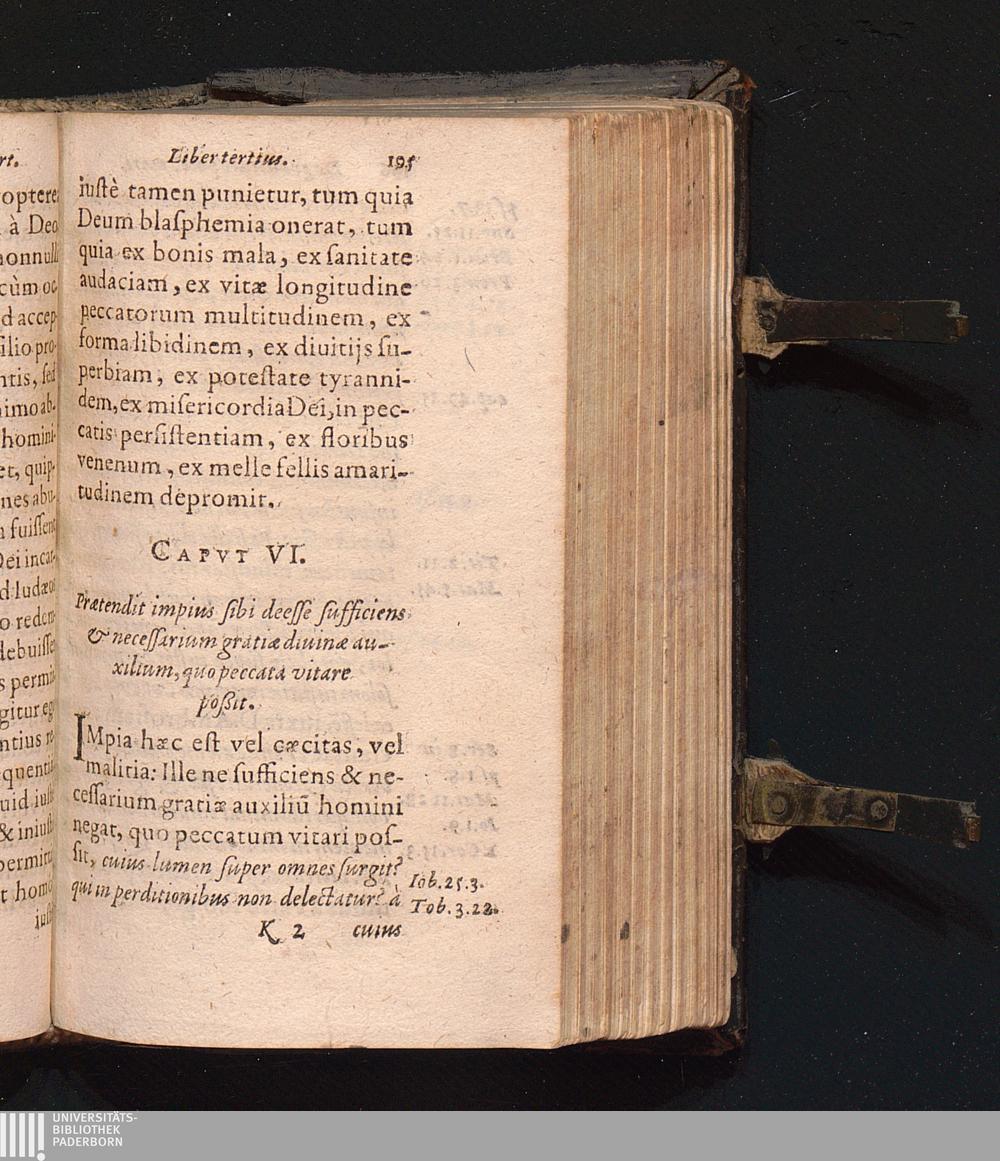 rt.
optere
à Deo
nonnull
cùm oc
d accep-
ilio pro-
ntis, sed
nimo ab-
homini-
et, quip-
nes abu-
fuissent
Dei incar-
d Iudæos
o redem
debuisse
s permi
gitur eg
ntius re
equenti
uid iust
& iniust
permitt
t homo
iust
Liber tertius. 195
iustè tamen punietur, tum quia
Deum blasphemia onerat, tum
quia ex bonis mala, ex sanitate
audaciam, ex vitæ longitudine
peccatorum multitudinem, ex
forma libidinem, ex diuitijs su-
perbiam, ex potestate tyranni-
dem, ex misericordia Dei, in pec-
catis persistentiam, ex floribus
venenum, ex melle fellis amari-
tudinem depromit.
CAPVT VI.
Prætendit impius sibi deesse sufficiens
& necessarium gratiæ diuinæ au-
xilium, quo peccata vitare
possit.
IMpia hæc est vel cæcitas, vel
malitia: Ille ne sufficiens & ne-
cessarium gratiæ auxiliū homini
negat, quo peccatum vitari pos-
sit, cuius lumen super omnes surgit?
qui in perditionibus non delectatur? à
Iob. 25.3.
Tob. 3.22.
K 2 cuius
UNIVERSITÄTS-
BIBLIOTHEK
PADERBORN